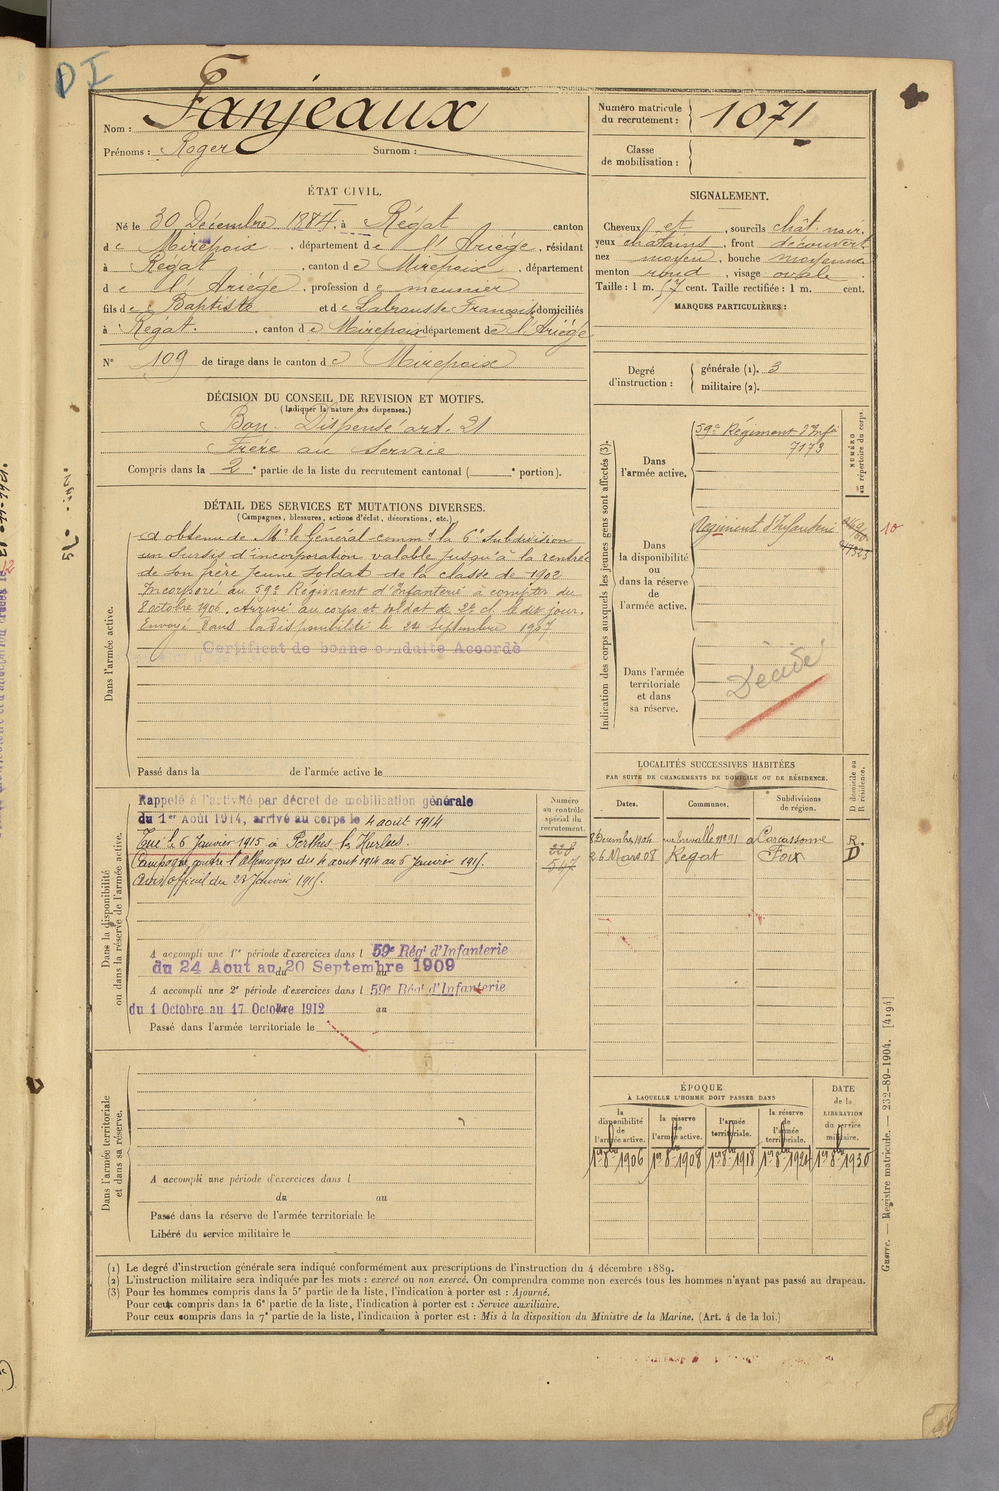 DI
Nom : Fanjeaux
Prénoms : Roger Surnom :
Numéro matricule du recrutement : 1071
Classe de mobilisation :
ÉTAT CIVIL.
Né le 30 Décembre 1884, à Régat canton
de Mirepoix, département de l'Ariége, résidant
à Régat, canton de Mirepoix, département
de l'Ariége, profession de meunier
fils de Baptiste et de Labrousse Françoise domiciliés
à Régat, canton de Mirepoix département de l'Ariége
N° 109 de tirage dans le canton de Mirepoix
SIGNALEMENT.
Cheveux et, sourcils chât. noir,
yeux chatains, front découvert
nez moyen, bouche moyenne
menton rond, visage ovale
Taille : 1 m. 57 cent. Taille rectifiée : 1 m. cent.
MARQUES PARTICULIÈRES :
Degré d'instruction : générale (1). 3
militaire (2).
DÉCISION DU CONSEIL DE REVISION ET MOTIFS.
(Indiquer la nature des dispenses.)
Bon. Dispensé art. 21
Frère au service
Compris dans la 2e partie de la liste du recrutement cantonal ( e portion).
DÉTAIL DES SERVICES ET MUTATIONS DIVERSES.
(Campagnes, blessures, actions d'éclat, décorations, etc.)
Dans l'armée active.
a obtenu de Mr le Général commt la 6e Subdivision
un sursis d'incorporation valable jusqu'à la rentrée
de son frère jeune soldat de la classe de 1902
Incorporé au 59e Régiment d'Infanterie à compter du
8 octobre 1906. Arrivé au corps et soldat de 2e cl. le dit jour.
Envoyé dans la disponibilité le 24 septembre 1907
Certificat de bonne conduite Accordé
Passé dans la de l'armée active le
Indication des corps auxquels les jeunes gens sont affectés (3).
NUMÉRO au répertoire du corps.
Dans l'armée active.
59e Régiment d'Infie
7173
Dans la disponibilité ou dans la réserve de l'armée active.
Régiment d'Infanterie
10
Dans l'armée territoriale et dans sa réserve.
Décédé
LOCALITÉS SUCCESSIVES HABITÉES
PAR SUITE DE CHANGEMENTS DE DOMICILE OU DE RÉSIDENCE.
D domicile ou R résidence.
Dates. Communes. Subdivisions de région.
8 Décembre 1904 n° 91 à Carcassonne R.
26 Mars 08 Régat Foix D
Dans la disponibilité ou dans la réserve de l'armée active.
Numéro au contrôle spécial du recrutement.
228
547
Rappelé à l'activité par décret de mobilisation générale
du 1er Août 1914, arrivé au corps le 4 août 1914
Tué le 6 Janvier 1915 à Perthes les Hurlus.
Campagne contre l'Allemagne du 4 août 1914 au 6 Janvier 1915.
Avis officiel du 23 Janvier 1915.
A accompli une 1re période d'exercices dans l 59e Régt d'Infanterie
du 24 Aout au 20 Septembre 1909
A accompli une 2e période d'exercices dans l 59e Régt d'Infanterie
du 1 Octobre au 17 Octobre 1912 au
Passé dans l'armée territoriale le
Dans l'armée territoriale et dans sa réserve.
A accompli une période d'exercices dans l
du au
Passé dans la réserve de l'armée territoriale le
Libéré du service militaire le
ÉPOQUE
À LAQUELLE L'HOMME DOIT PASSER DANS
DATE de la LIBÉRATION du service militaire.
la disponibilité de l'armée active. la réserve de l'armée active. l'armée territoriale. la réserve de l'armée territoriale.
1er 8bre 1906 1er 8bre 1908 1er 8bre 1918 1er 8bre 1924 1er 8bre 1930
Guerre. — Registre matricule. — 232-89-1904. [4194]
(1) Le degré d'instruction générale sera indiqué conformément aux prescriptions de l'instruction du 4 décembre 1889.
(2) L'instruction militaire sera indiquée par les mots : exercé ou non exercé. On comprendra comme non exercés tous les hommes n'ayant pas passé au drapeau.
(3) Pour les hommes compris dans la 5e partie de la liste, l'indication à porter est : Ajourné.
Pour ceux compris dans la 6e partie de la liste, l'indication à porter est : Service auxiliaire.
Pour ceux compris dans la 7e partie de la liste, l'indication à porter est : Mis à la disposition du Ministre de la Marine. (Art. 4 de la loi.)